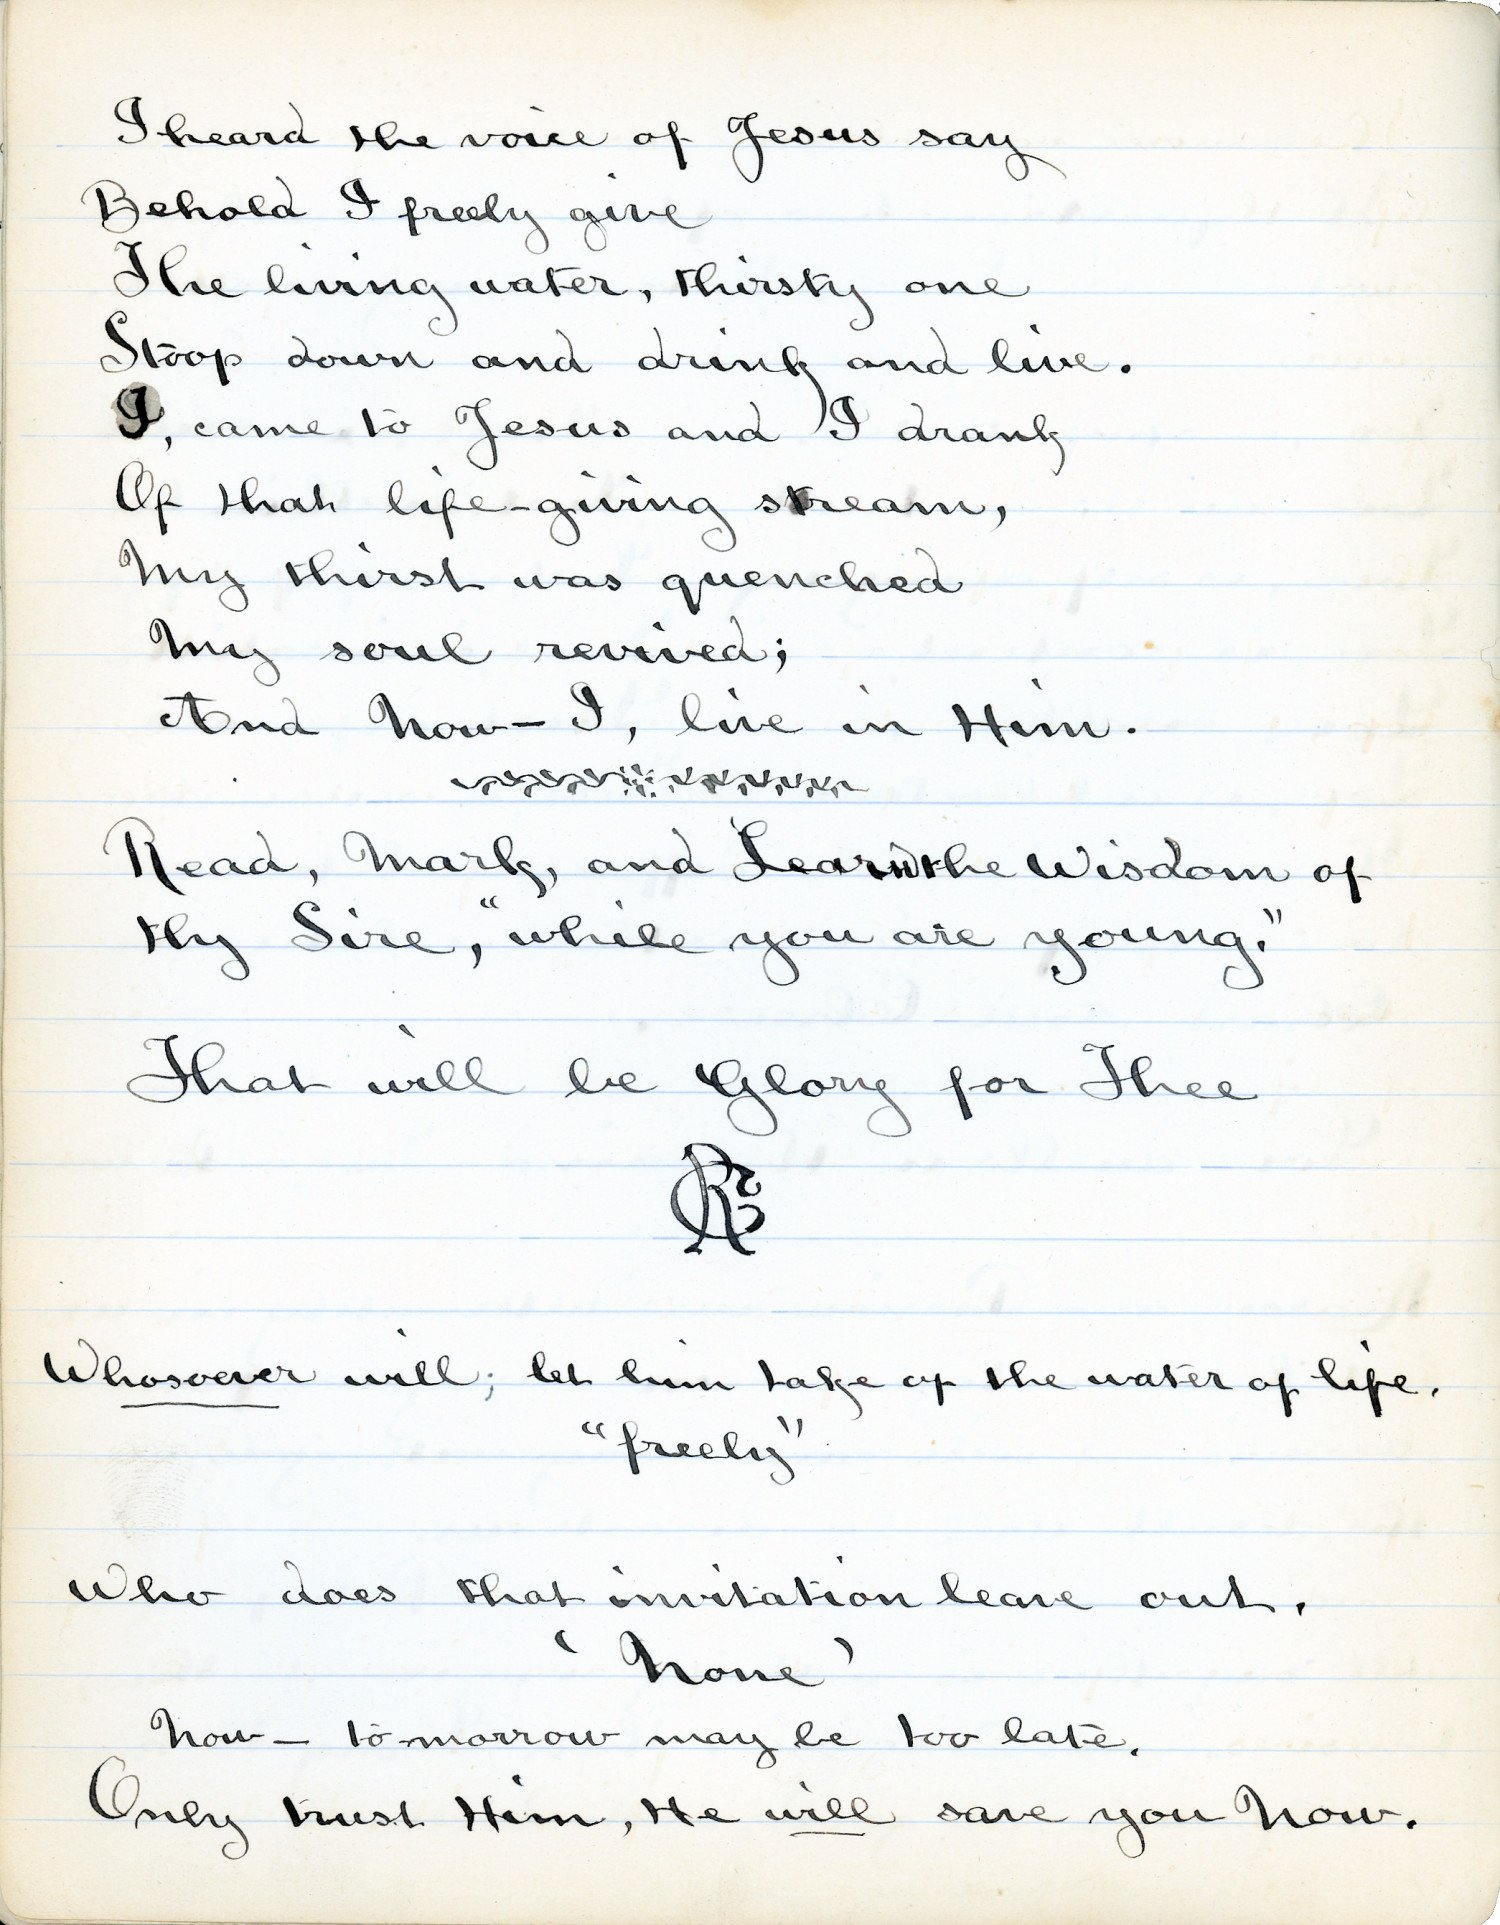 I heard the voice of Jesus say
Behold I freely give
The living water, thirsty one
Stoop down and drink and live.
I, came to Jesus and I drank
Of that life-giving stream,
My thirst was quenched
My soul revived;
And Now- I, live in Him.
Read, Mark, and Learn the Wisdom of
thy Sire, "while you are young."
That will be Glory for Thee
Whosoever will; let him take of the water of life.
"freely"
Who does that invitation leave out.
'None'
Now- to-morrow may be too late.
Only trust Him, He will save you Now.